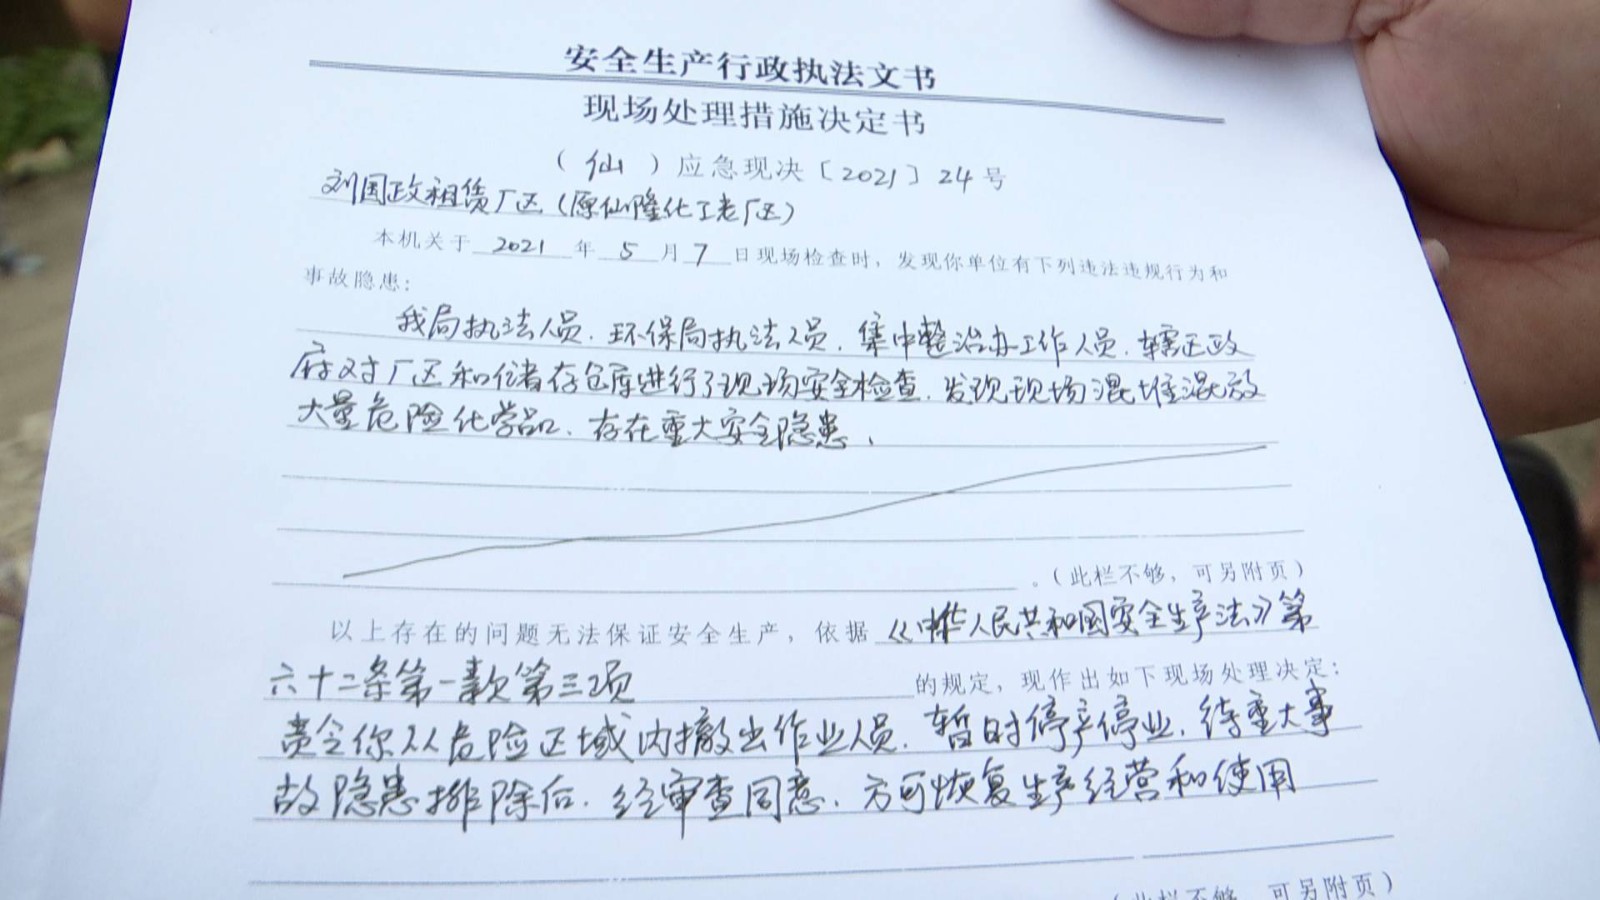 安全生产行政执法文书
现场处理措施决定书
（仙）应急现决〔2021〕24号
刘国政租赁厂区（原仙隆化工老厂区）
本机关于2021年5月7日现场检查时，发现你单位有下列违法违规行为和
事故隐患：
我局执法人员、环保局执法人员、集中整治办工作人员、辖区政
府对厂区和储存仓库进行了现场安全检查、发现现场混堆混放
大量危险化学品、存在重大安全隐患、
。（此栏不够，可另附页）
以上存在的问题无法保证安全生产，依据《中华人民共和国安全生产法》第
六十二条第一款第三项的规定，现作出如下现场处理决定：
责令你从危险区域内撤出作业人员、暂时停产停业、待重大事
故隐患排除后、经审查同意、方可恢复生产经营和使用
（此栏不够，可另附页）